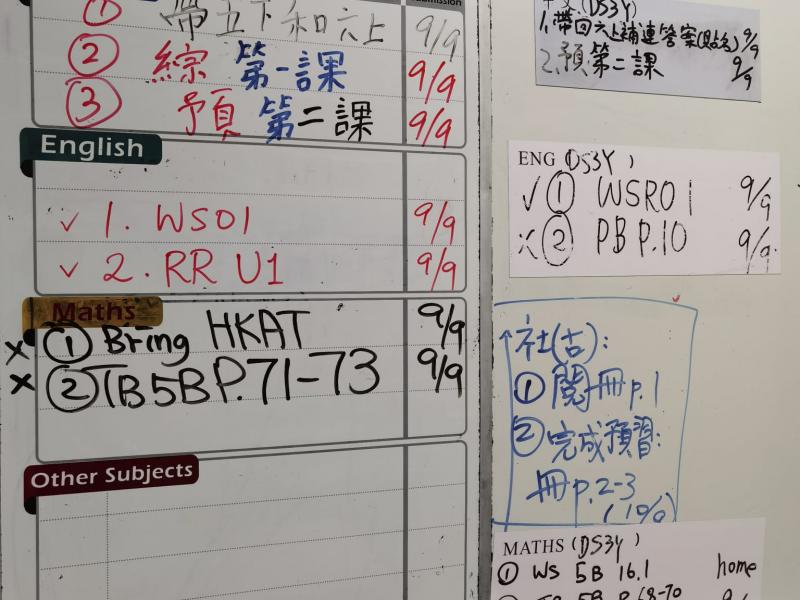 ① 帶五下和六上 9/9
② 綜 第一課 9/9
③ 預 第二課 9/9
English
✓ 1. WS01 9/9
✓ 2. RR U1 9/9
Maths
× ① Bring HKAT 9/9
× ② TB5B P.71-73 9/9
Other Subjects
(DS3Y)
1. 帶回六上補連答案(貼名) 9/9
2. 預第二課 9/9
ENG (DS3Y)
✓ ① WSR01 9/9
× ② PB P.10 9/9
社(古):
① 閱冊p.1
② 完成預習:
冊p.2-3
(10/9)
MATHS (DS3Y)
① WS 5B 16.1 home
5B P.68-70